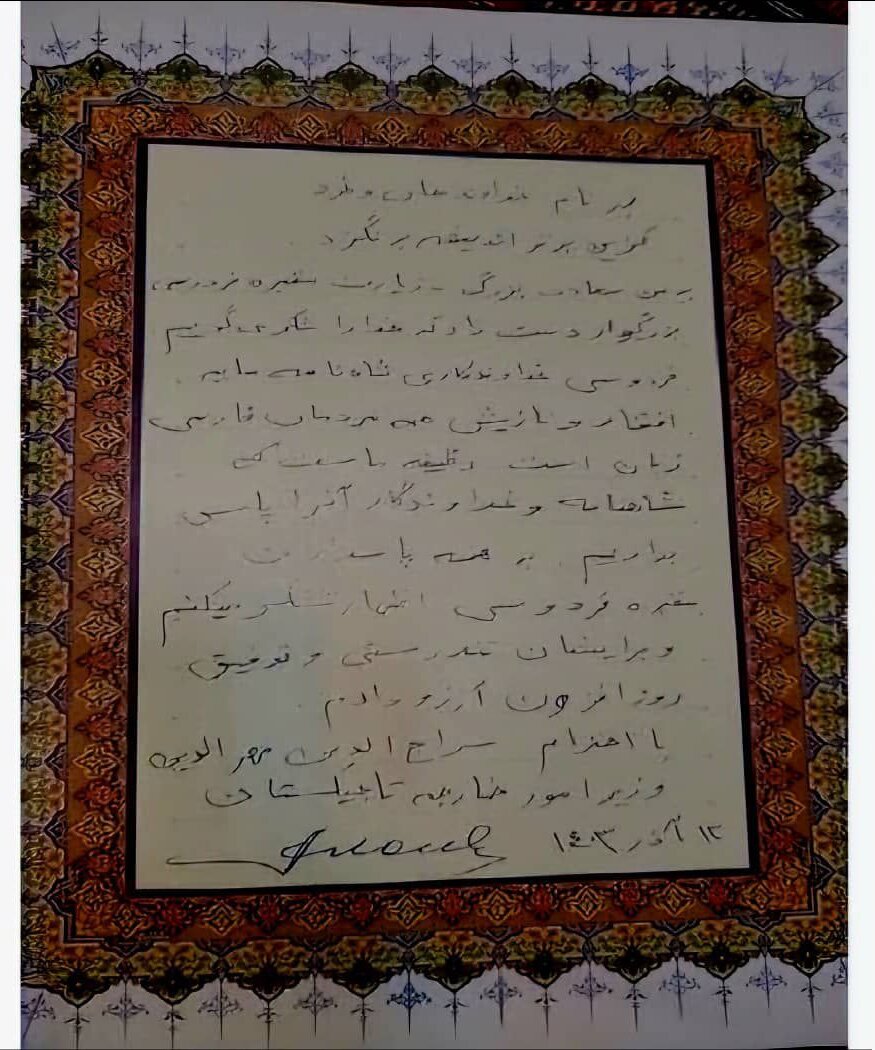 به نام خداوند جان و خرد
کزین برتر اندیشه برنگذرد
به من سعادت بزرگ زیارت مقبره فردوسی
بزرگوار دست داد که خدا را شکر می گویم
فردوسی خداوندگاری شاهنامه مایه
افتخار و نازش همه مردمان فارسی
زبان است وظیفه ماست که
شاهنامه و خداوندگار آنرا پاس
بداریم به همه پاسداران
مقبره فردوسی اظهار تشکر میکنم
و برایشان تندرستی و توفیق
روز افزون آرزو دارم
با احترام سراج الدین مهرالدین
وزیر امور خارجه تاجیکستان
۱۲ آذر ۱۴۰۳